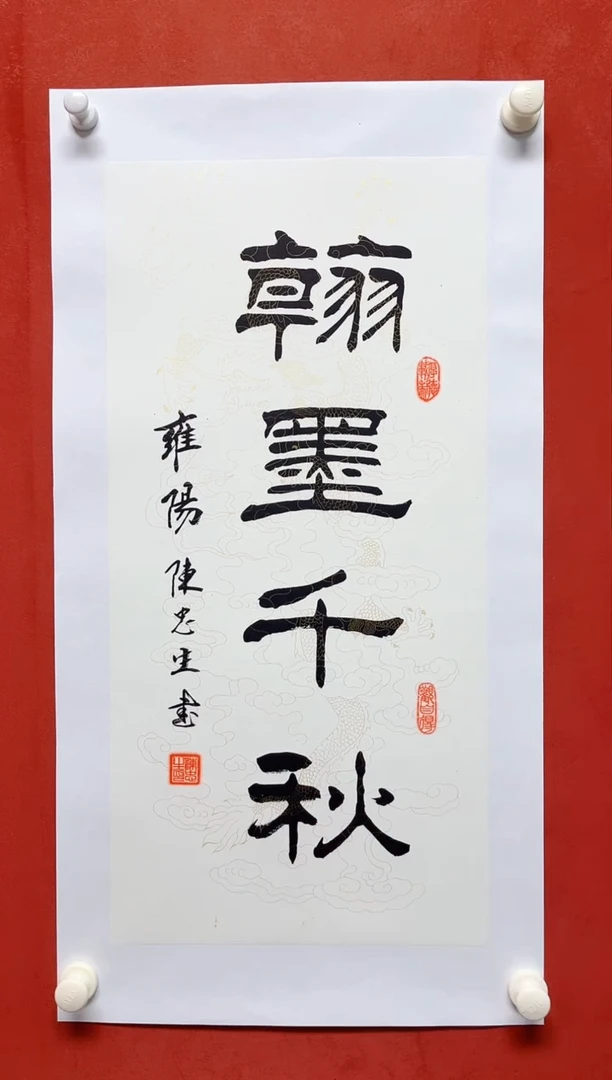 翰墨千秋
雍陽陳忠生書